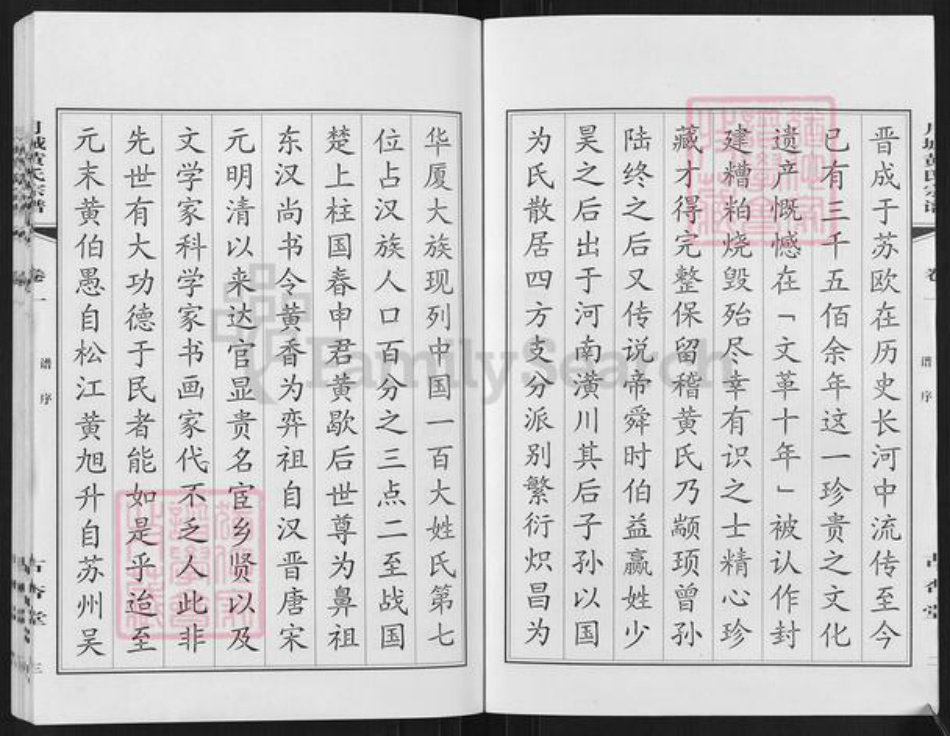 晋成于苏欧在历史长河中流传至今
已有三千五佰余年这一珍贵之文化
遗产慨憾在「文革十年」被认作封
建糟粕烧毁殆尽幸有识之士精心珍
藏才得完整保留稽黄氏乃颛顼曾孙
陆终之后又传说帝舜时伯益嬴姓少
昊之后出于河南潢川其后子孙以国
为氏散居四方支分派别繁衍炽昌为
谱序
二
华厦大族现列中国一百大姓氏第七
位占汉族人口百分之三点二至战国
楚上柱国春申君黄歇后世尊为鼻祖
东汉尚书令黄香为弈祖自汉晋唐宋
元明清以来达官显贵名宦乡贤以及
文学家科学家书画家代不乏人此非
先世有大功德于民者能如是乎迨至
元末黄伯愚自松江黄旭升自苏州吴
月城黄氏宗谱
卷一
谱序
古杏堂
三
FamilySearch